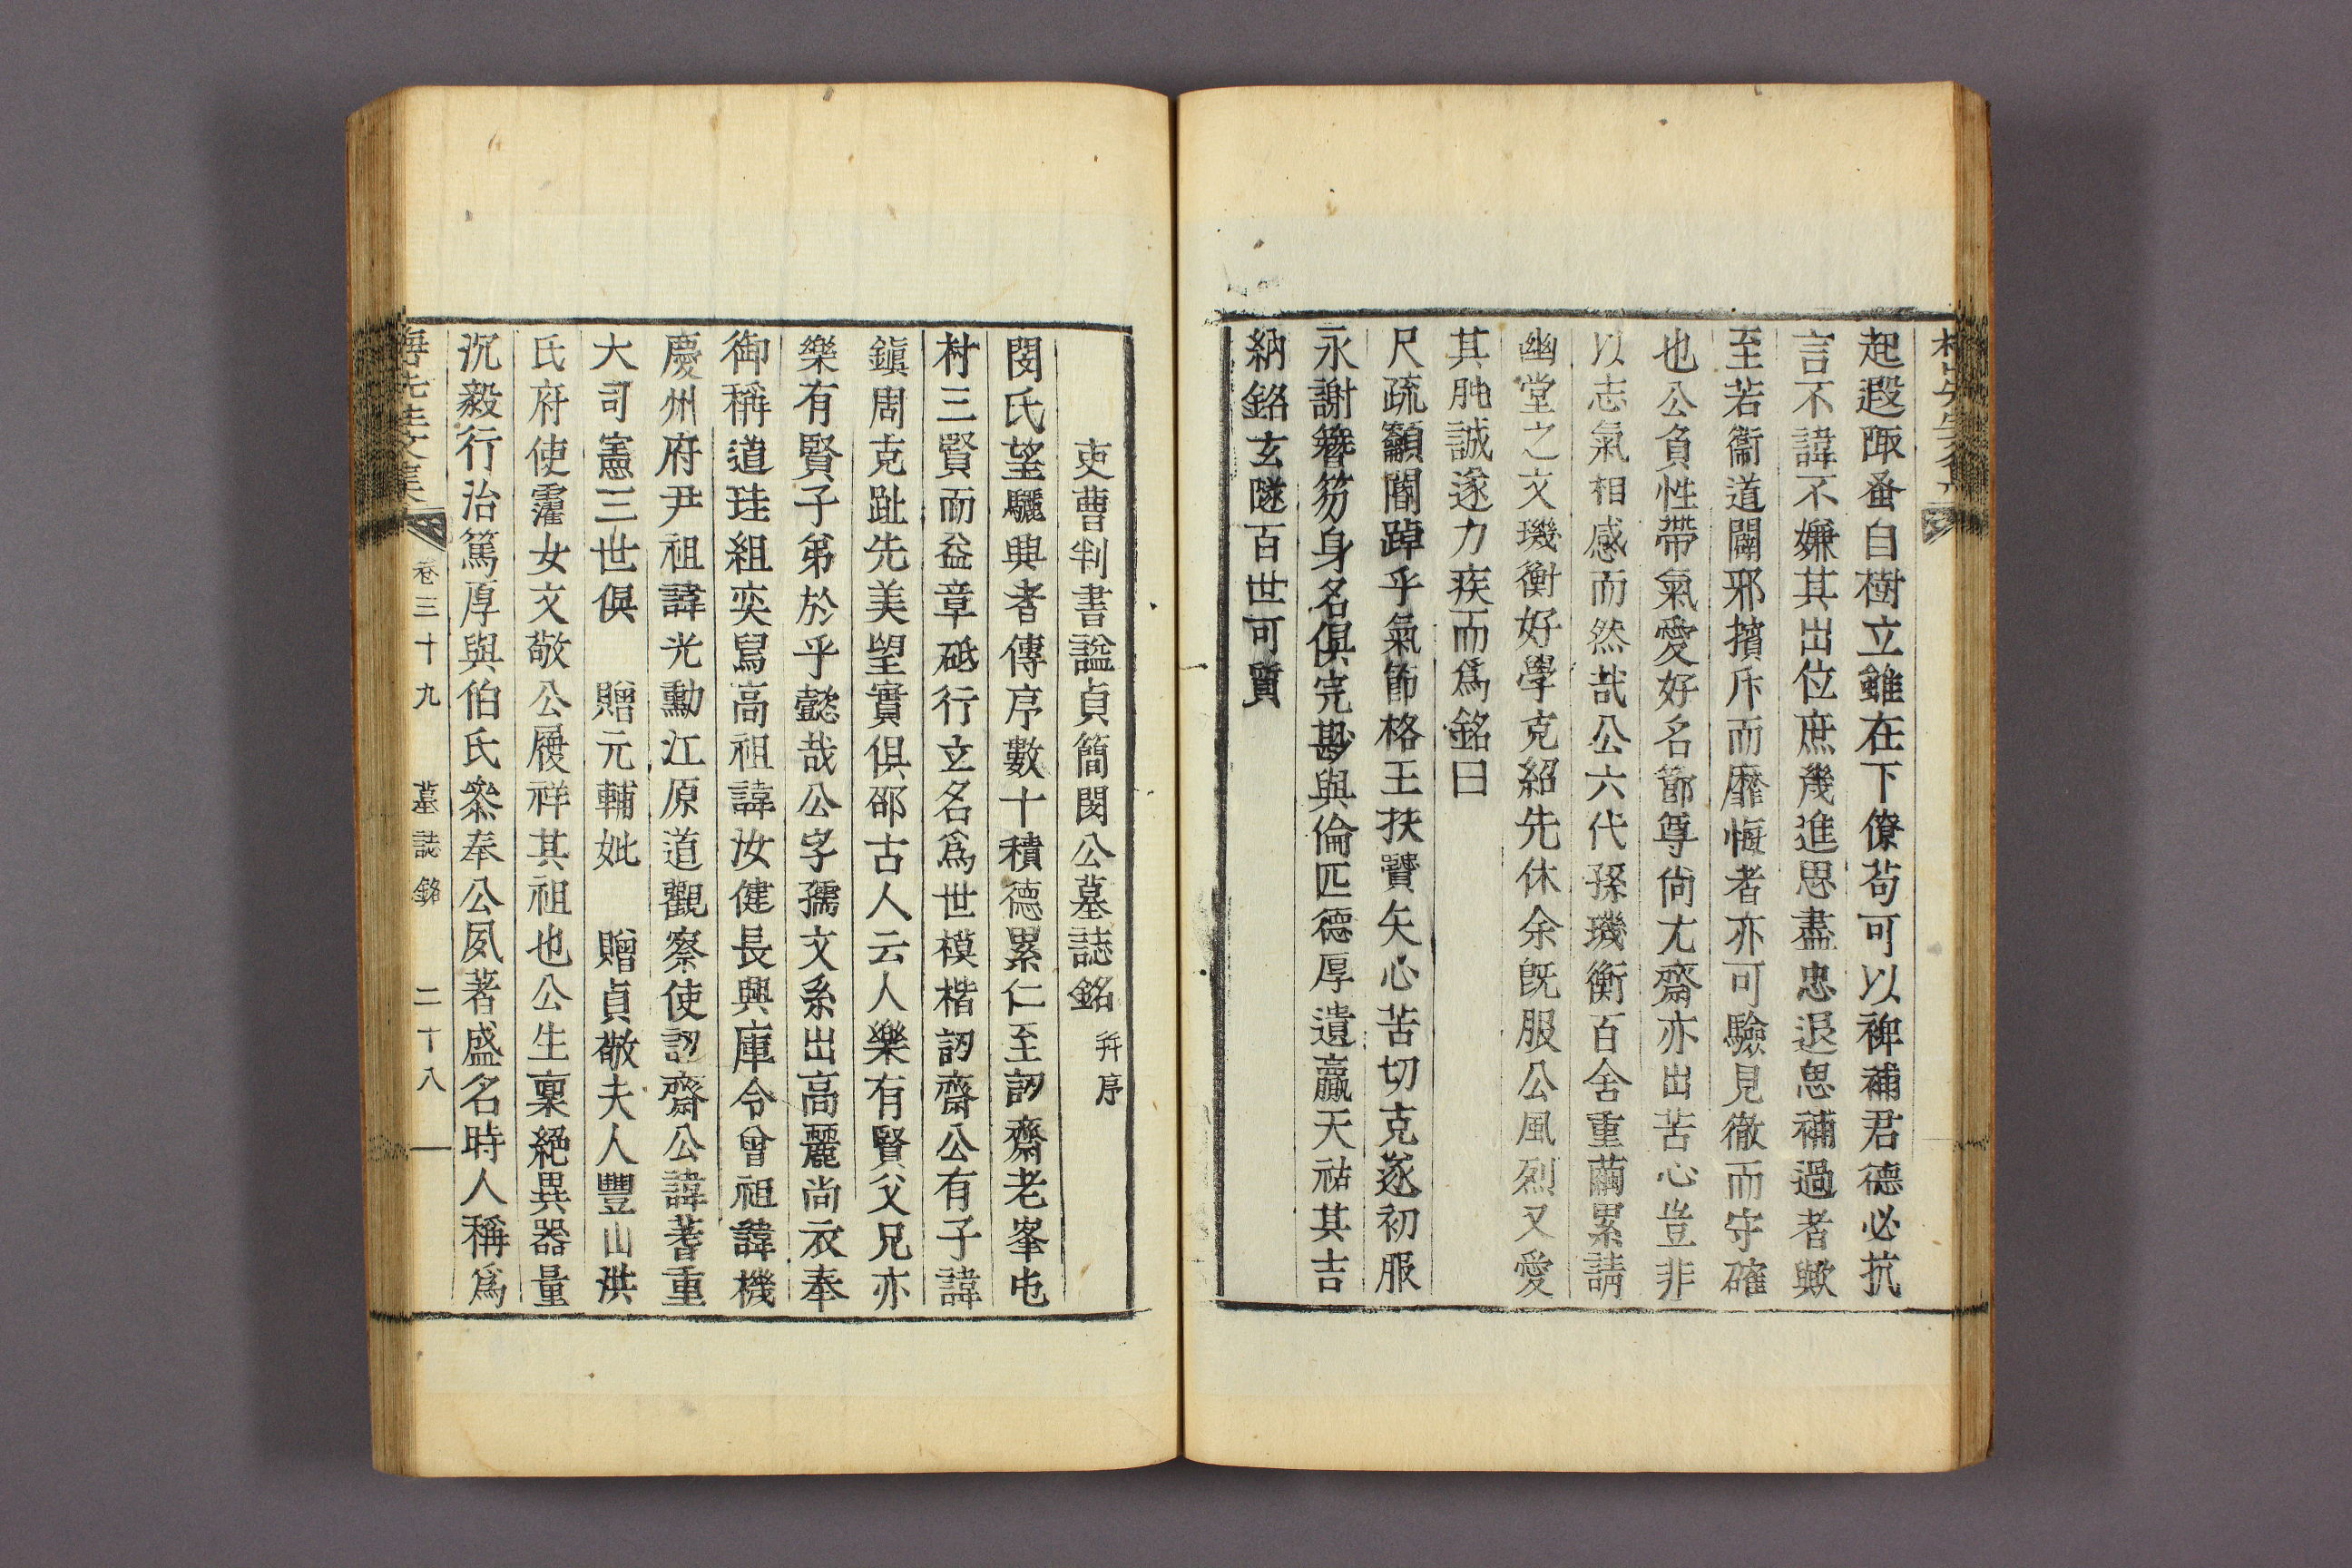 起遐陬蚤自樹立雖在下僚苟可以裨補君德必抗
言不諱不嫌其出位庶幾進思盡忠退思補過者歟
至若衞道闢邪擯斥而靡悔者亦可驗見徹而守確
也公負性帶氣愛好名節尊尙尤齋亦出苦心豈非
以志氣相感而然哉公六代孫璣衡百舍重繭累請
幽堂之文璣衡好學克紹先休余旣服公風烈又愛
其肫誠遂力疾而爲銘曰
尺疏籲閽踔乎氣節格王扶贒矢心苦切克遂初服
永謝簪笏身名俱完尠與倫匹德厚遺贏天祐其吉
納銘玄隧百世可質
吏曹判書謚貞簡閔公墓誌銘 幷序
閔氏望驪興者傳序數十積德累仁至訒齋老峯屯
村三賢而益章砥行立名爲世模楷訒齋公有子諱
鎭周克趾先美望實俱邵古人云人樂有賢父兄亦
樂有賢子弟於乎懿哉公字孺文系出高麗尙衣奉
御稱道珪組奕舃高祖諱汝健長興庫令曾祖諱機
慶州府尹祖諱光勳江原道觀察使訒齋公諱蓍重
大司憲三世俱 贈元輔妣 贈貞敬夫人豐山洪
氏府使霔女文敬公履祥其祖也公生稟絶異器量
沉毅行治篤厚與伯氏叅奉公夙著盛名時人稱爲
卷三十九 墓誌銘 二十八